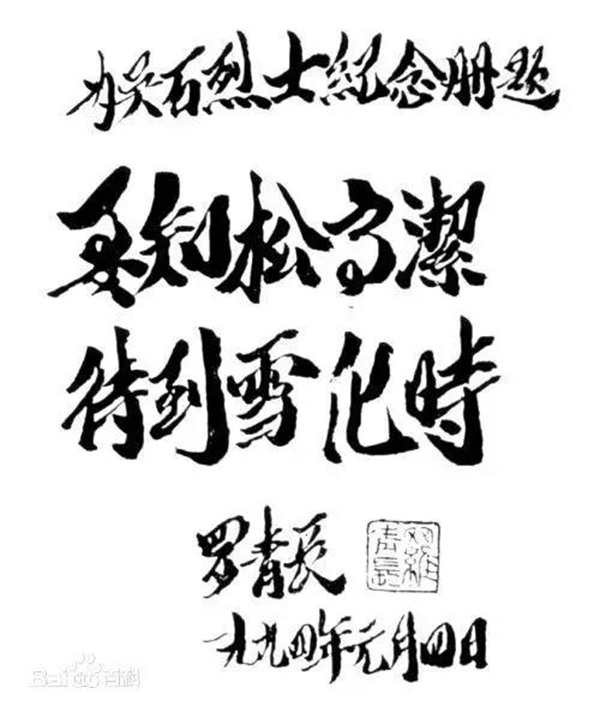 为吴石烈士紀念册题
要知松高潔
待到雪化時
罗青長
羅青長
一九九四年元月四日
Bai百科